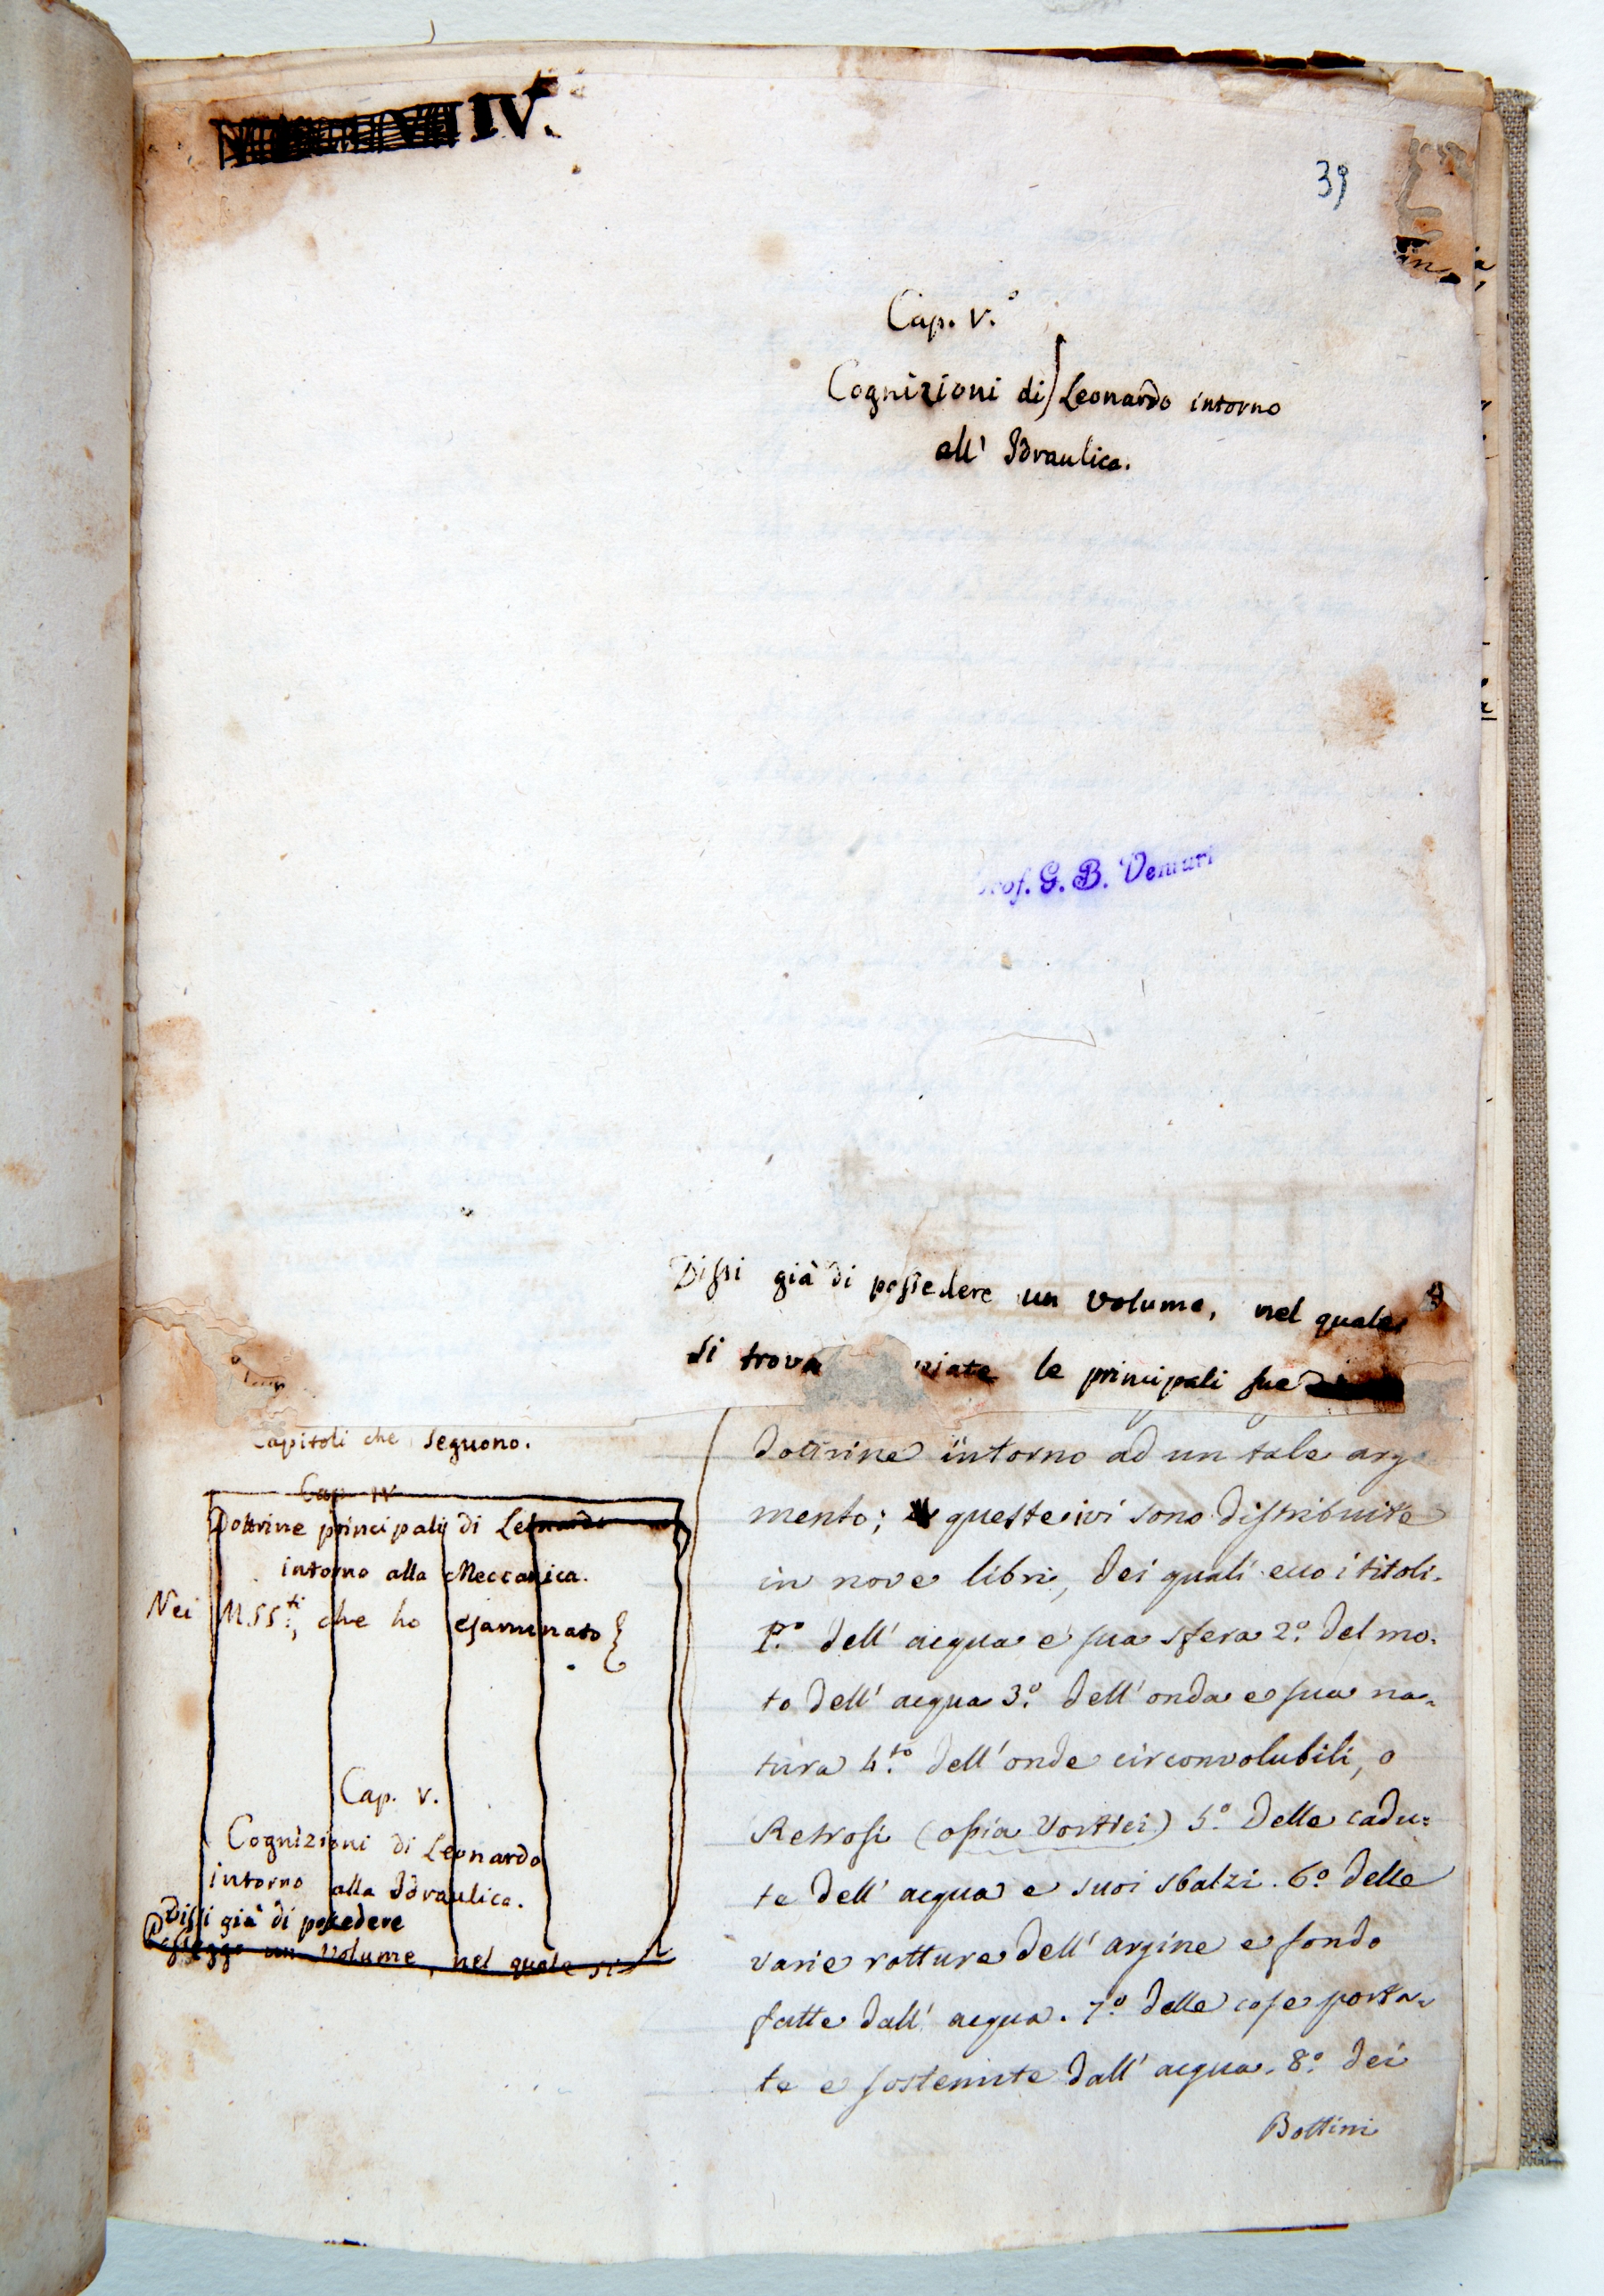 IV.
39
Cap. V.º
Cognizioni di Leonardo intorno
all' Idraulica.
Prof. G. B. Venturi
Dissi già di possedere un volume, nel quale
si trova le principali sue
Capitoli che seguono.
Cap. IV
Dottrine principali di Leonardo
intorno alla Meccanica.
Nei M.SS.ti, che ho esaminato
Cap. V.
Cognizioni di Leonardo
intorno alla Idraulica.
Dissi già di possedere
Posseggo un volume, nel quale si
dottrine intorno ad un tale argo
mento; queste ivi sono distribuite
in nove libri, dei quali ecco i titoli.
P.º dell' acqua e sua sfera 2.º del mo-
to dell' acqua 3.º dell' onda e sua na-
tura 4.to dell' onde circonvolubili, o
Retrosi (ossia Vortici) 5.º Delle cadu-
te dell' acqua e suoi sbalzi. 6.º delle
varie rotture dell' argine e fondo
fatte dall' acqua. 7.º delle cose porta-
te e sostenute dall' acqua. 8.º dei
Bottini